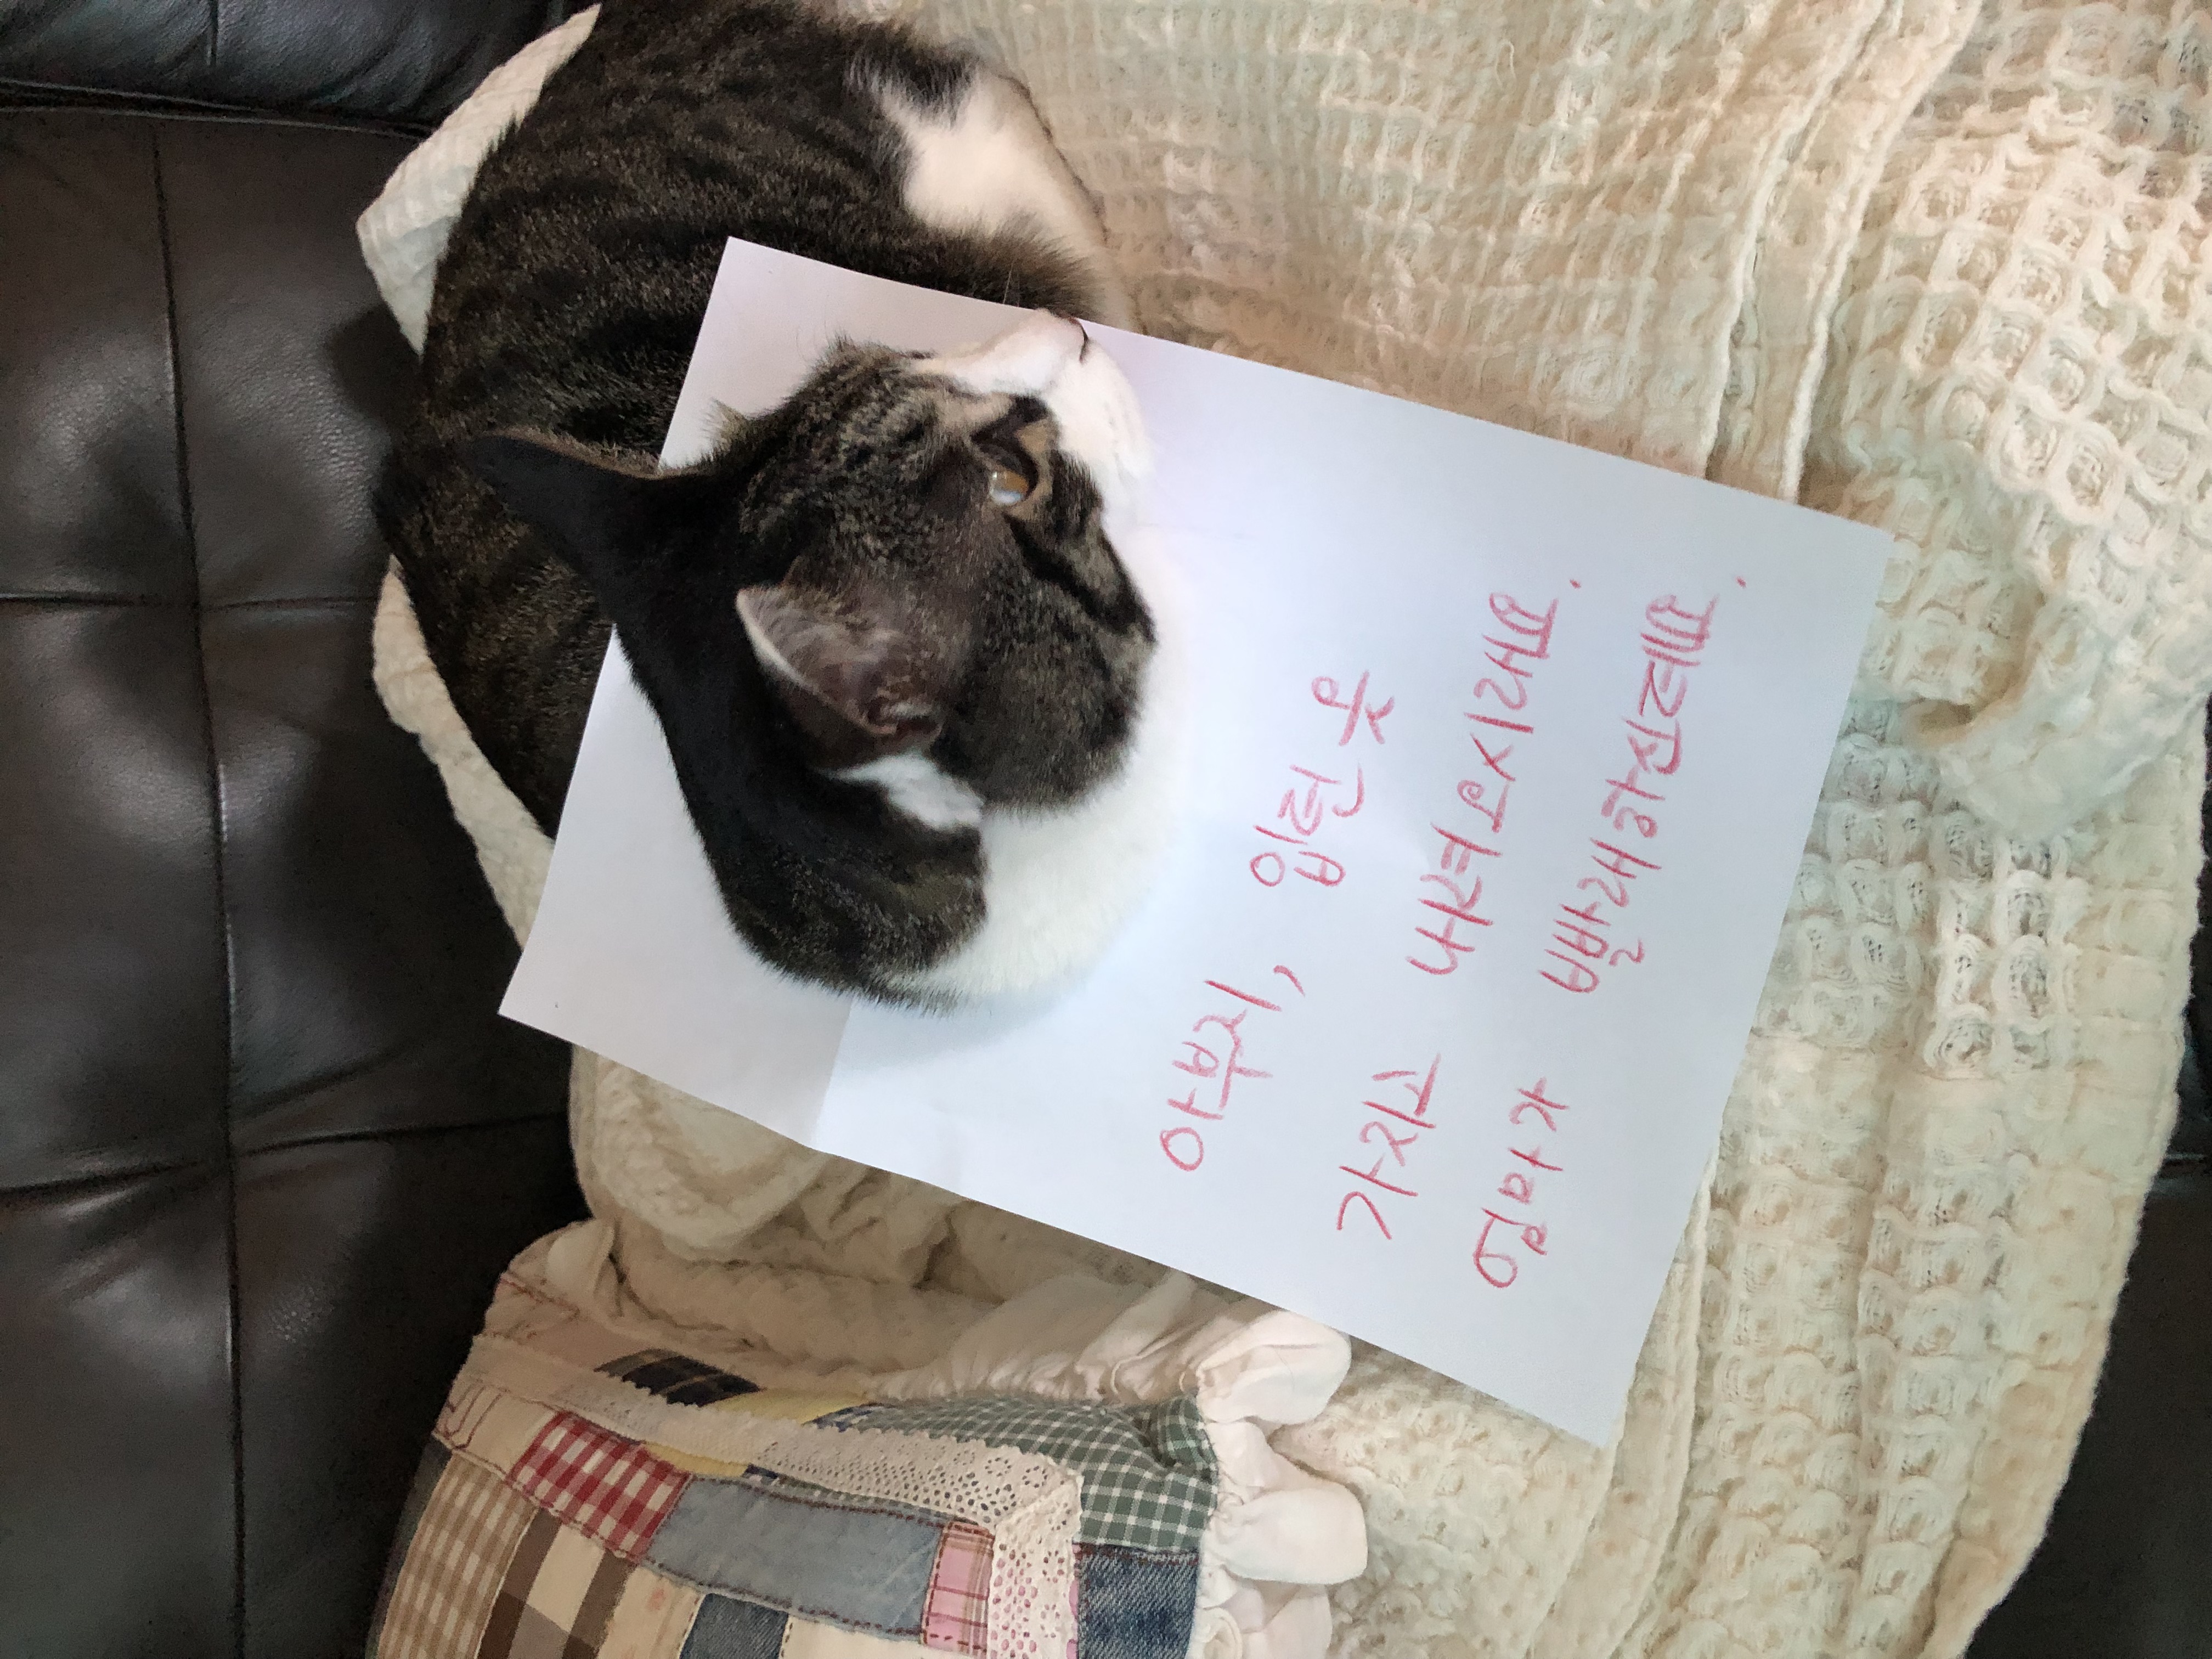 아부지, 입런 옷
가지고 내려오시래요.
엄마가 빨래하신데요.